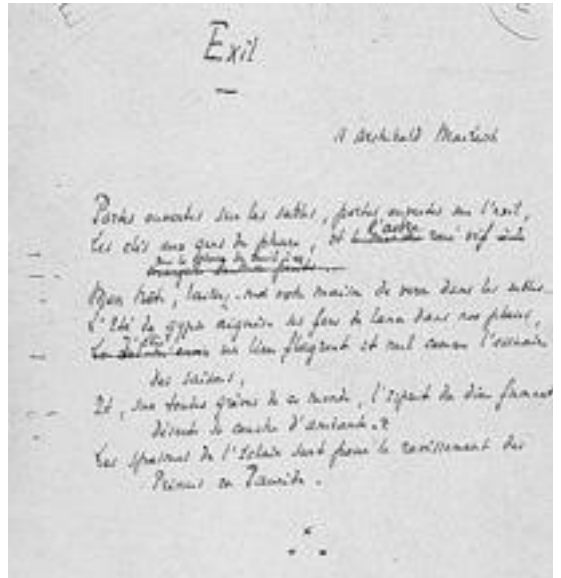 Exil
A Archibald MacLeish
Portes ouvertes sur les sables, portes ouvertes sur l'exil,
Les clés aux gens du phare, et l'astre roué vif
sur la pierre du seuil :
Mon hôte, laissez-moi votre maison de verre dans les sables...
L'Été de gypse aiguise ses fers de lance dans nos plaies,
un lieu flagrant et nul comme l'ossuaire
des saisons,
Et, sur toutes grèves de ce monde, l'esprit du dieu fumant
déserte sa couche d'amiante.
Les spasmes de l'éclair sont pour le ravissement des
Princes en Tauride.